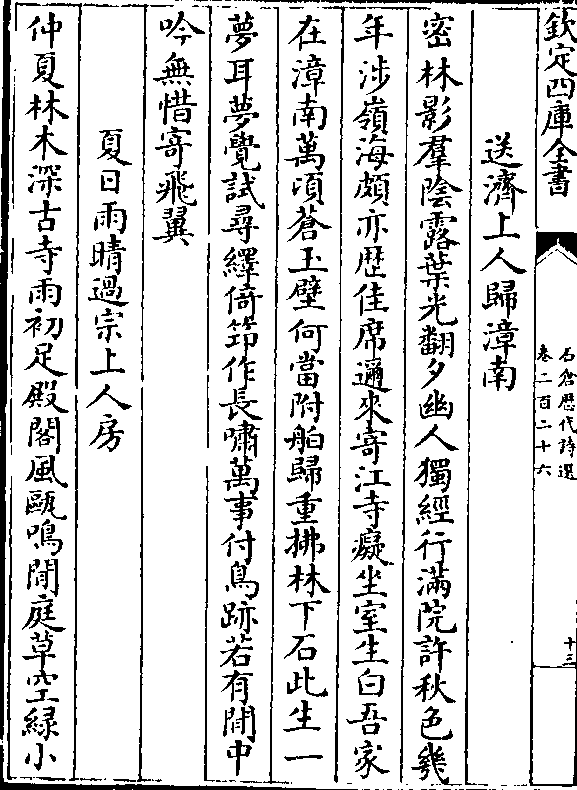 欽定四庫全書
石倉歴代詩選
卷二百二十六
十三
送濟上人歸漳南
密林影羣陰露葉光翻夕幽人獨經行滿院許秋色幾
年涉嶺海頗亦歴佳席邇來寄江寺癡坐室生白吾家
在漳南萬頃蒼玉壁何當附舶歸重拂林下石此生一
夢耳夢覺試尋繹倚笻作長嘯萬事付鳥跡若有閒中
吟無惜寄飛翼
夏日雨晴過宗上人房
仲夏林木深古寺雨初足殿閣風甌鳴閒庭草空緑小